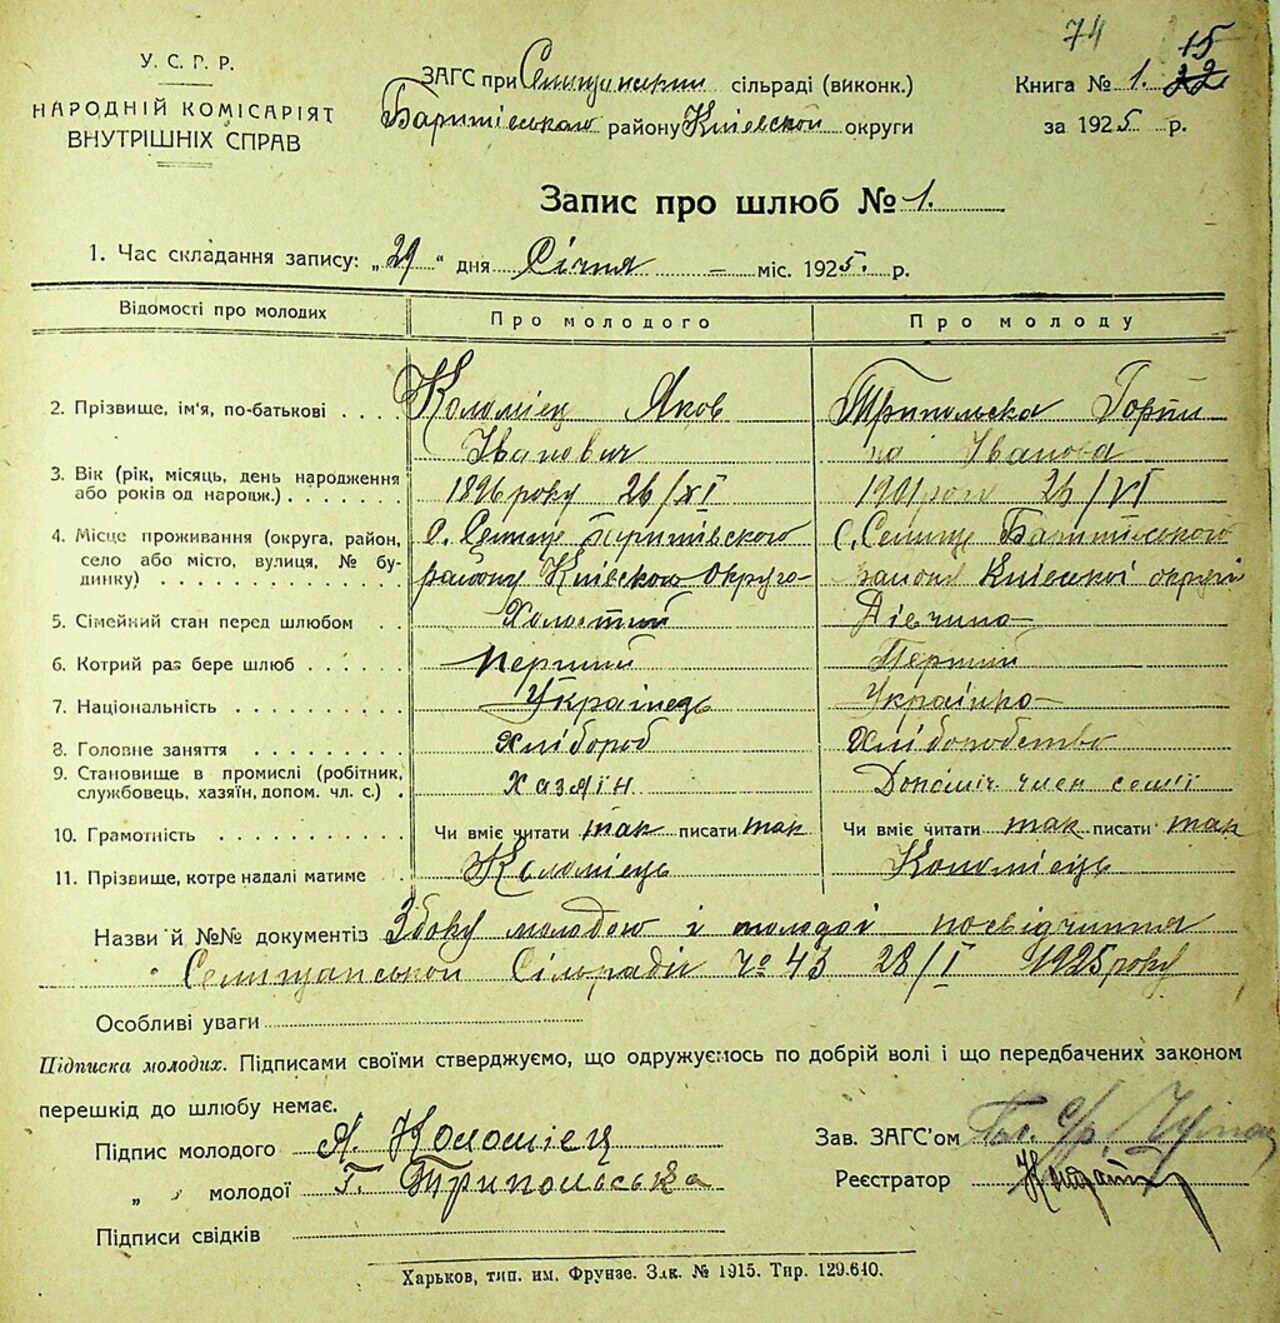 74
15
У. С. Г. Р.
НАРОДНІЙ КОМІСАРІЯТ
ВНУТРІШНІХ СПРАВ
ЗАГС при Селищанскій сільраді (виконк.)
Баришівського району Київской округи
Книга № 1. 22
за 1925 р.
Запис про шлюб № 1.
1. Час складання запису: „29" дня Січня – міс. 1925. р.
Відомості про молодих Про молодого Про молоду
2. Прізвище, ім'я, по-батькові . . . . Коломієц Яков Трипольска Горпи
Іванович на Іванова
3. Вік (рік, місяць, день народження
або років од народж.) . . . . . . . 1896 року 26/XI 1901 року 23/VI
4. Місце проживання (округа, район, С. Селище Баришівского С. Селище Баришівського
село або місто, вулиця, № бу-
динку) . . . . . . . . . . . . . району Київского Округа району Київскої округи
5. Сімейний стан перед шлюбом . . Холостий Дівчина
6. Котрий раз бере шлюб . . . . . . Перший Перший
7. Національність . . . . . . . . . . Українець Українка
8. Головне заняття . . . . . . . . . Хлібороб Хліборобство
9. Становище в промислі (робітник,
службовець, хазяїн, допом. чл. с.) . Хазяїн Допоміч. член семії
10. Грамотність . . . . . . . . . . . Чи вміє читати так писати так Чи вміє читати так писати так
11. Прізвище, котре надалі матиме . Коломієць Коломієць
Назви й №№ документів Збоку молодого і молодої посвідчення
Селищанськой Сільради № 43 28/I 1925 року
Особливі уваги
Підписка молодих. Підписами своїми стверджуємо, що одружуємось по добрій волі і що передбачених законом
перешкід до шлюбу немає.
Підпис молодого Я. Коломієц
Зав. ЗАГС'ом
„ „ молодої Г. Трипольська
Реєстратор
Підписи свідків
Харьков, тип. им. Фрунзе. Зак. № 1915. Тир. 129.640.